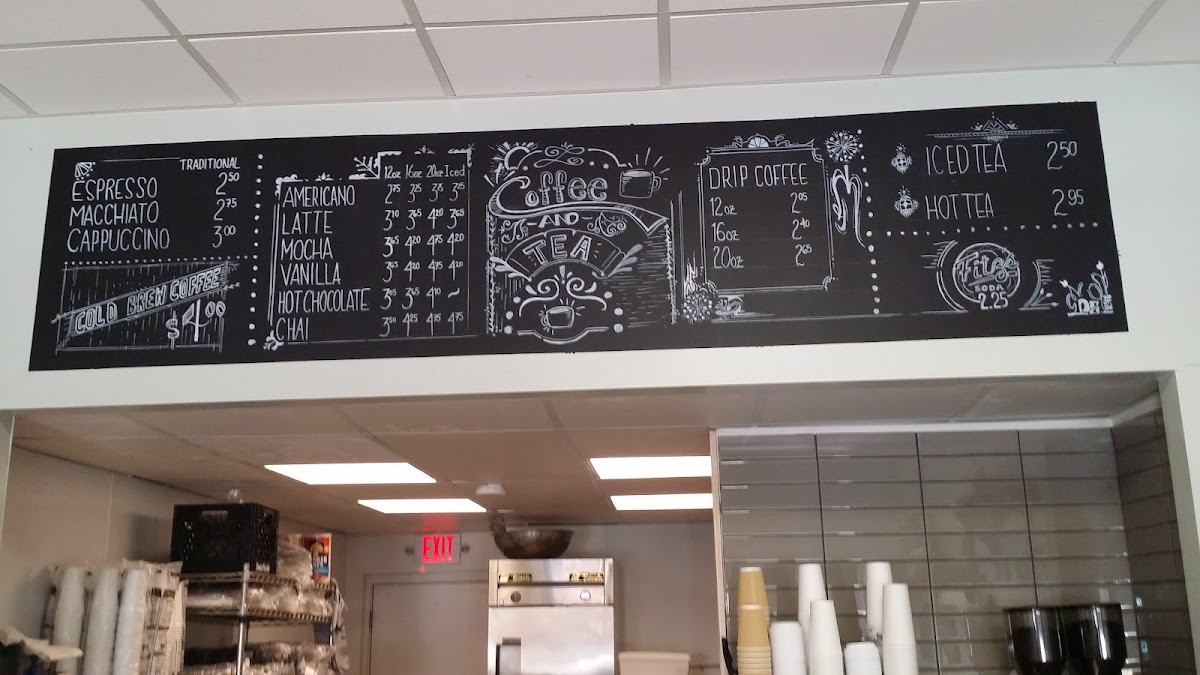 TRADITIONAL
ESPRESSO 2.50
MACCHIATO 2.75
CAPPUCCINO 3.00
COLD BREW COFFEE
$4.00
12oz 16oz 20oz Iced
AMERICANO 2.75 3.25 3.75 3.25
LATTE 3.10 3.65 4.20 3.65
MOCHA 3.65 4.20 4.75 4.20
VANILLA 3.65 4.20 4.75 4.20
HOT CHOCOLATE 3.10 3.65 4.10 ~
CHAI 3.50 4.25 4.75 4.75
Coffee
AND
TEA
DRIP COFFEE
12oz 2.05
16oz 2.40
20oz 2.65
ICED TEA 2.50
HOT TEA 2.95
Fitz's
SODA
2.25
EXIT